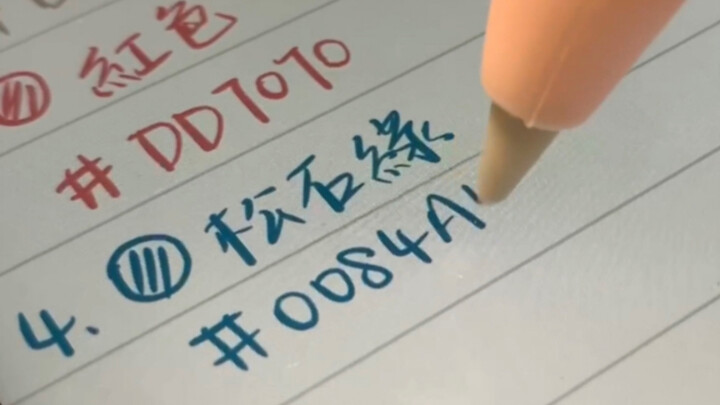 紅色
#DD7070
4. 松石綠
#0084A